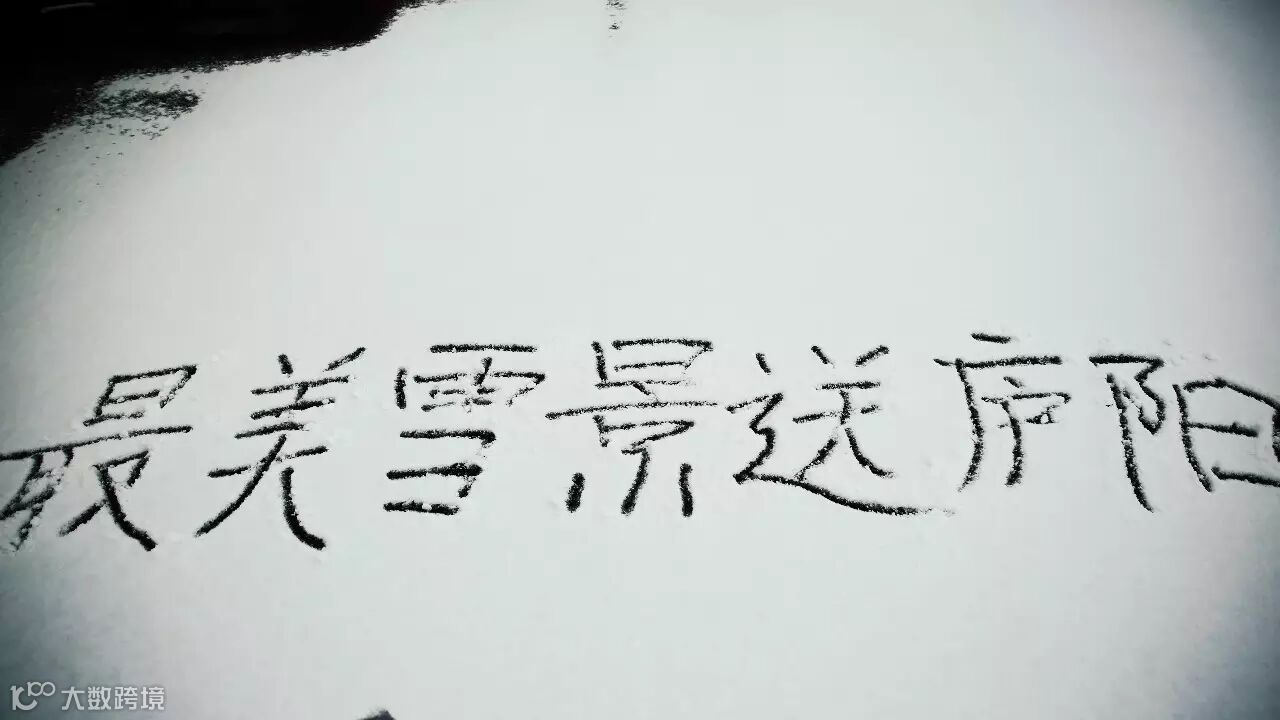 最美雪景送庐阳
大数跨境